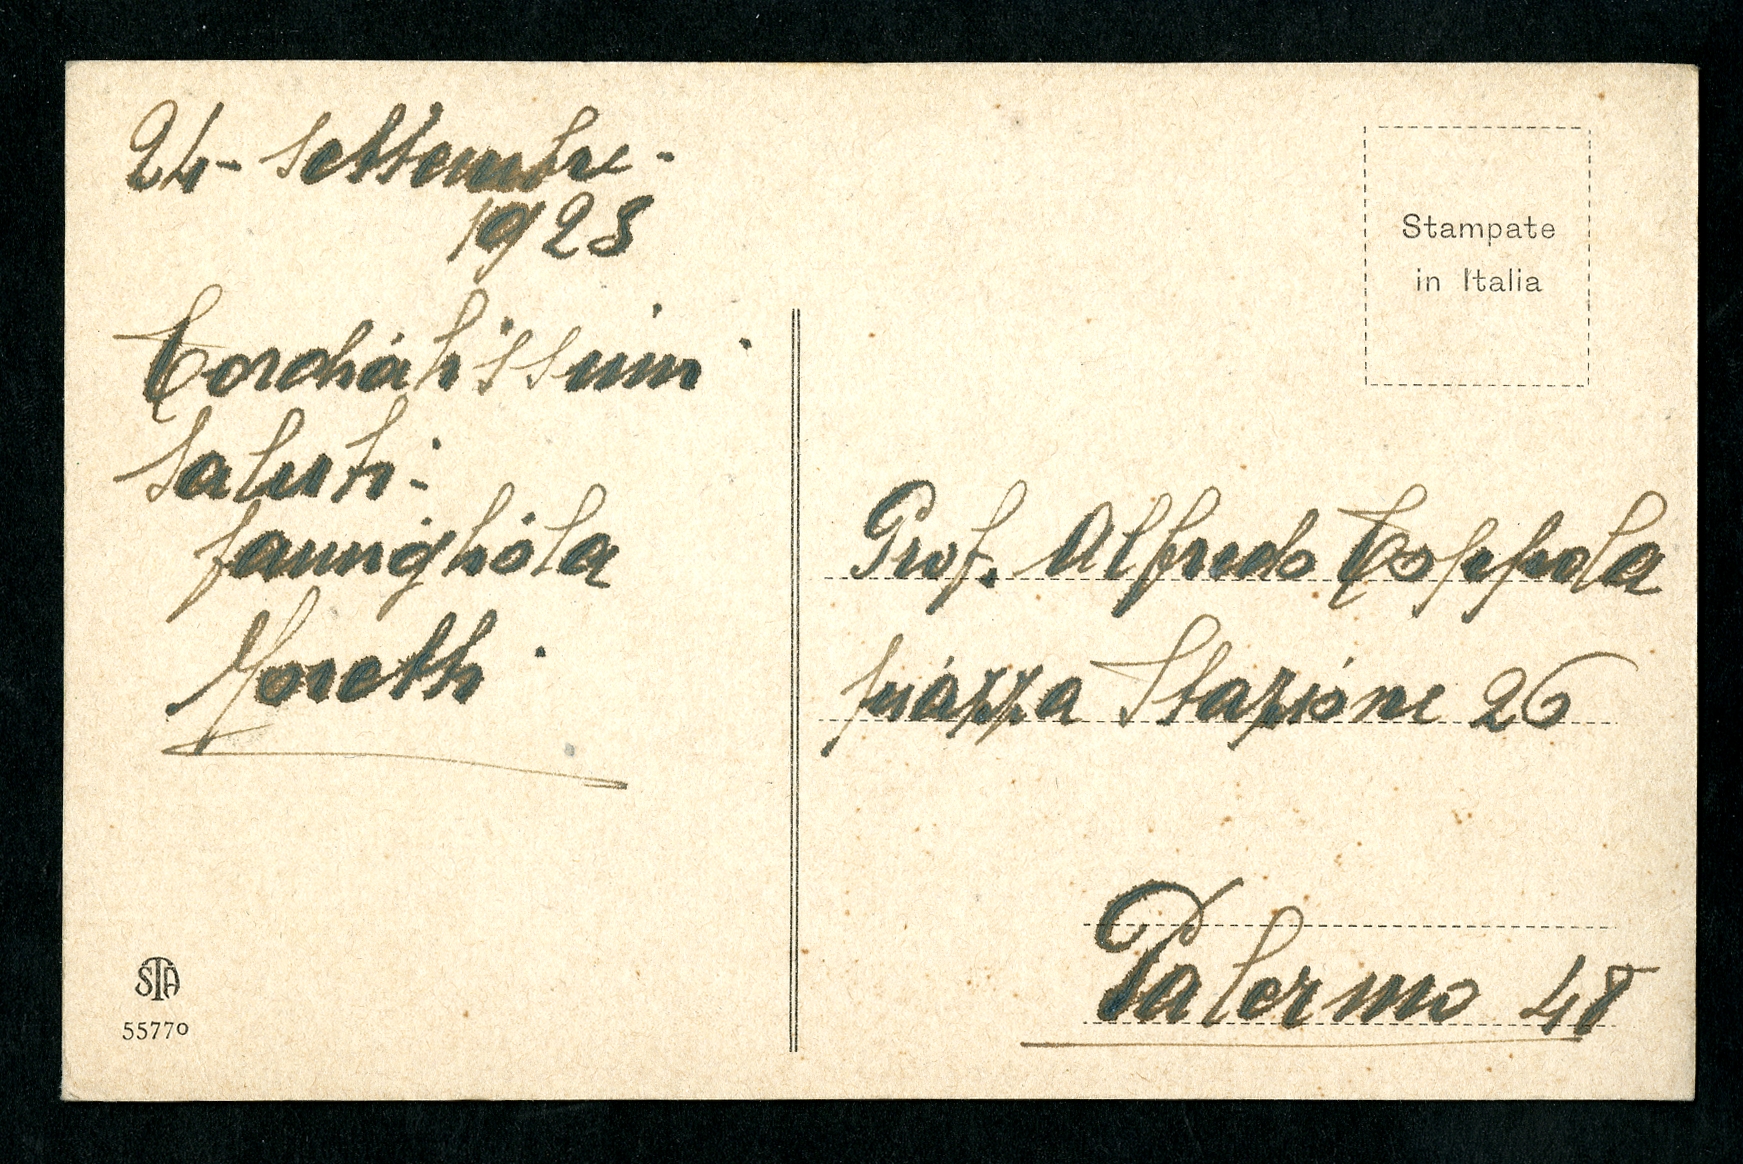 24 - Settembre -
1923
Cordialissimi
Saluti -
famigliola
Moretti.
STA
55770
Stampate
in Italia
Prof. Alfredo Coppola
piazza Stazione 26
Palermo 48